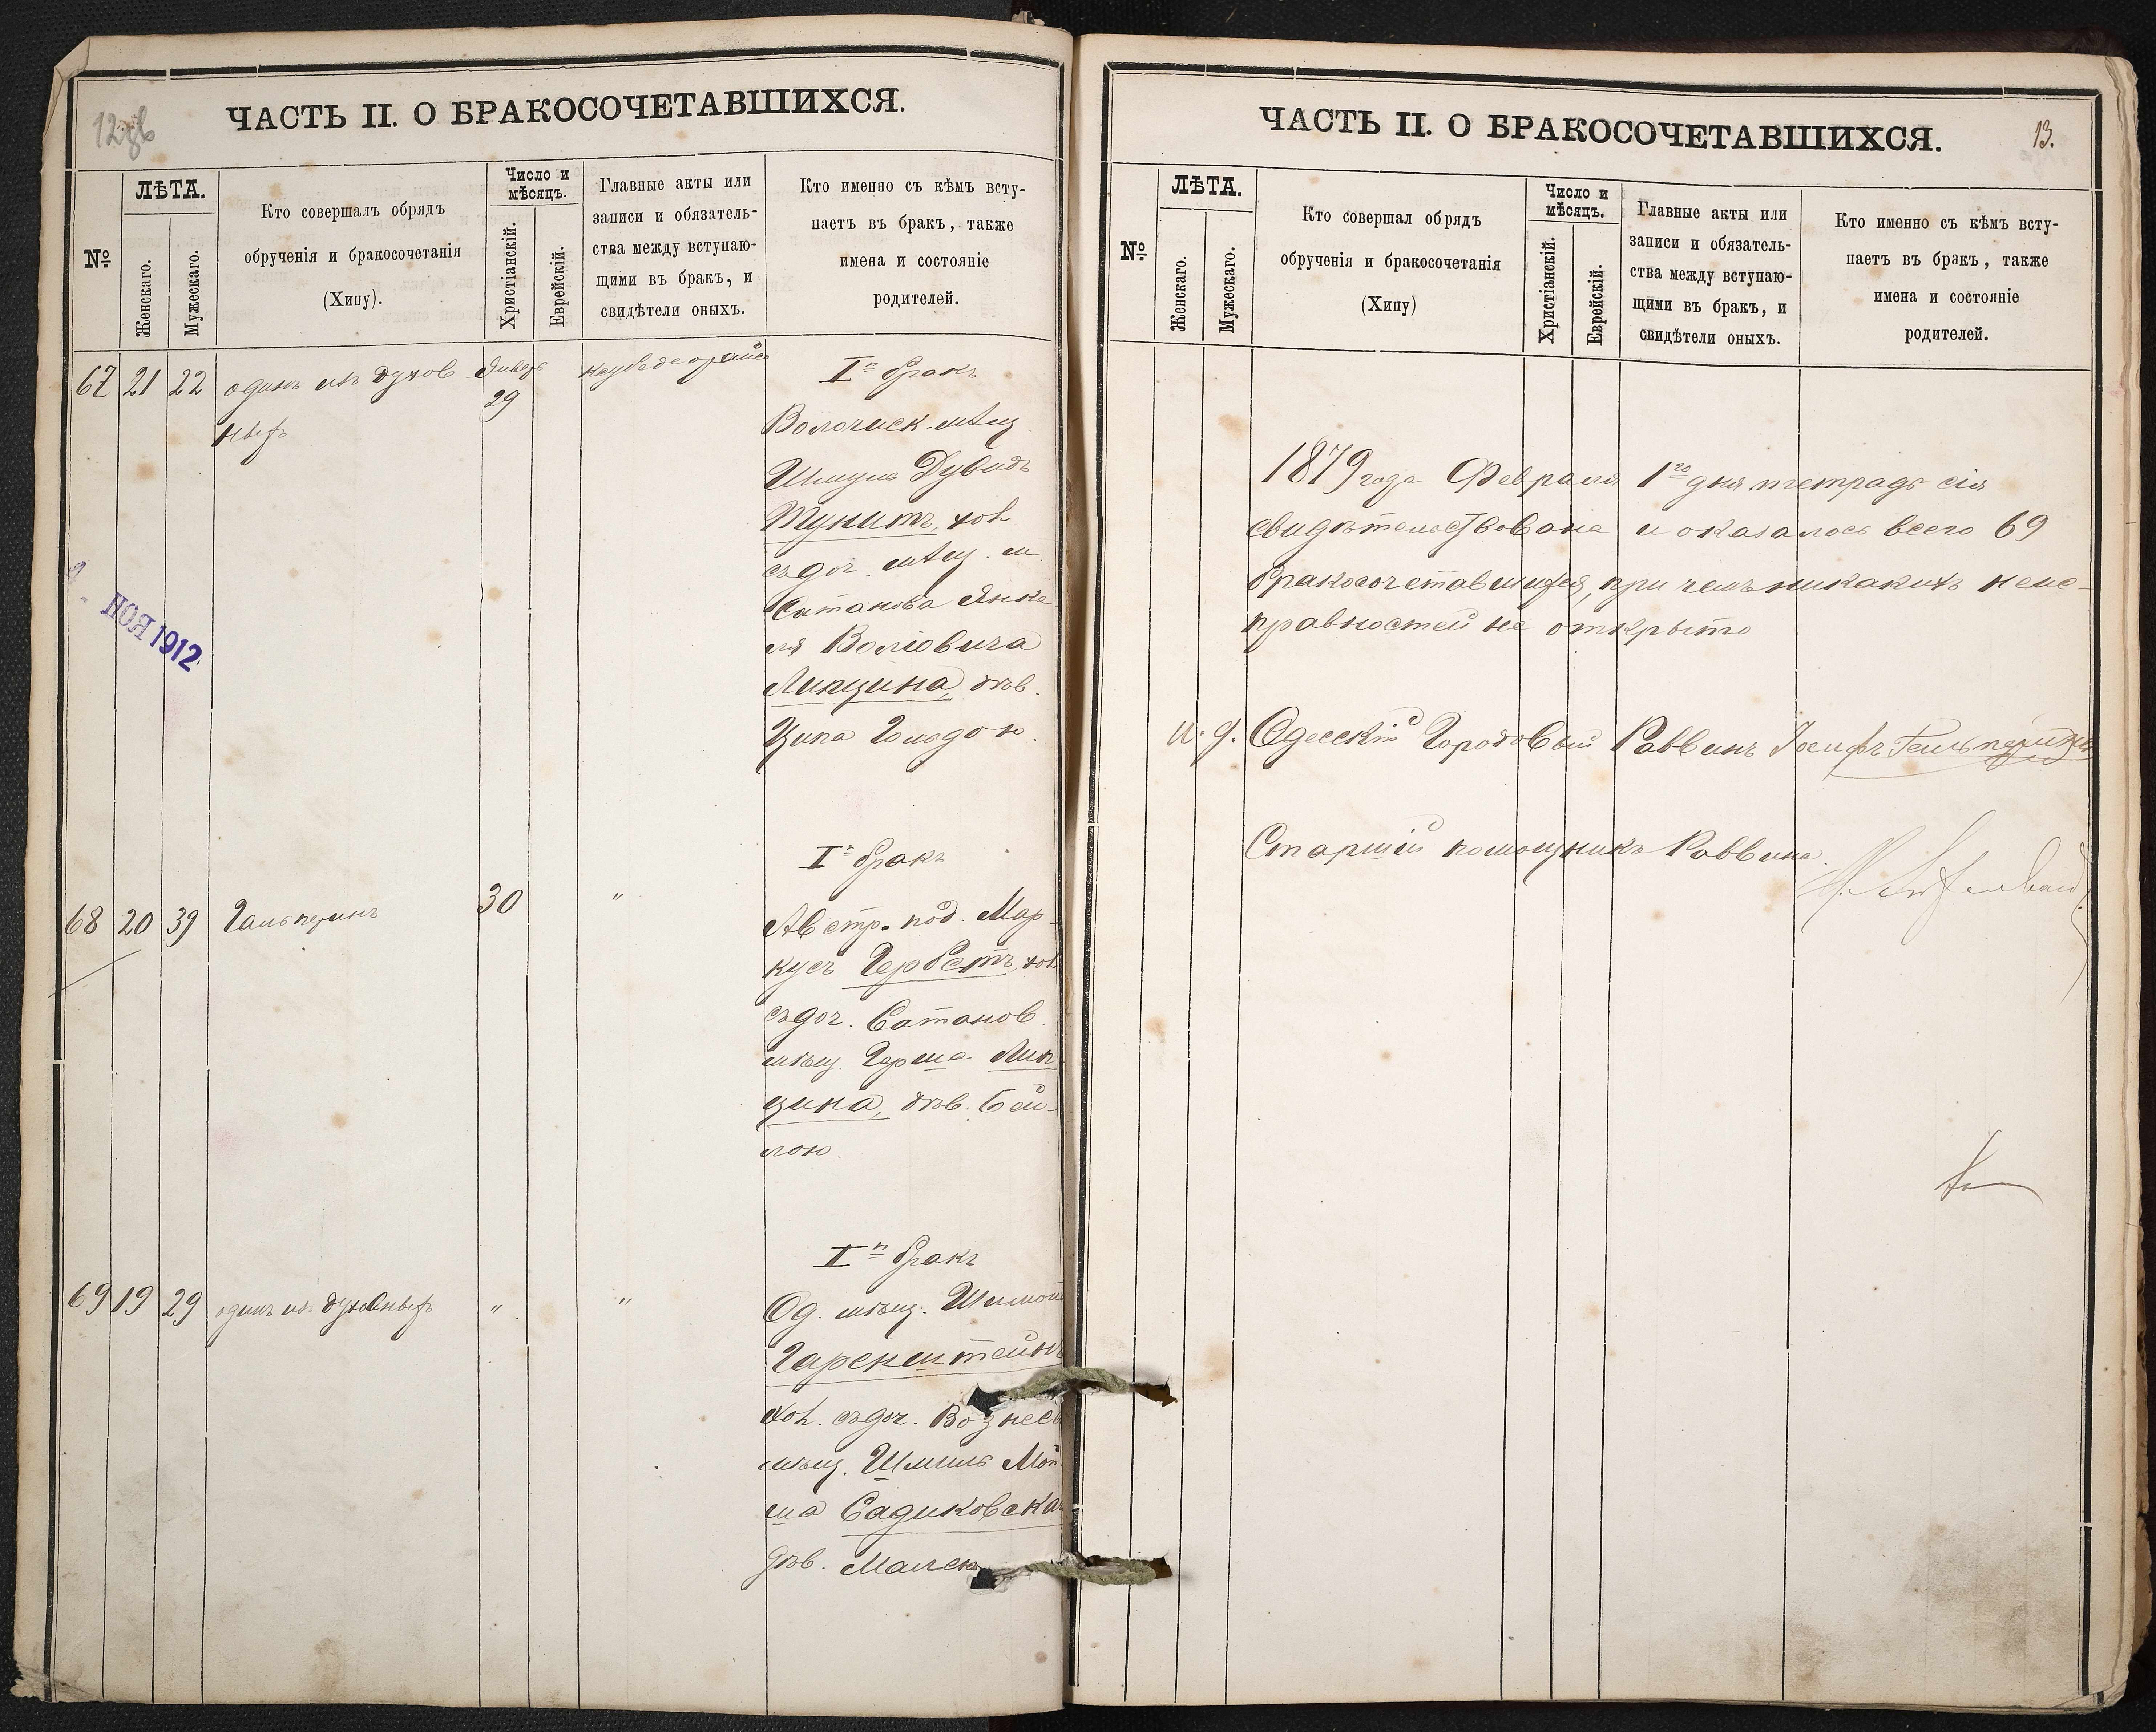 12об
ЧАСТЬ II. О БРАКОСОЧЕТАВШИХСЯ.
№
ЛѢТА.
Женскаго.
Мужескаго.
Кто совершалъ обрядъ
обрученія и бракосочетанія
(Хипу).
Число и
мѣсяцъ.
Христіанскій.
Еврейскій.
Главные акты или
записи и обязатель-
ства между вступаю-
щими въ бракъ, и
свидѣтели оныхъ.
Кто именно съ кѣмъ всту-
паетъ въ бракъ, также
имена и состояніе
родителей.
67 21 22 одинъ изъ духов
ныхъ
Январь
29
Iй бракъ
Волочиск. мѣщ
Шмуль Дувидъ
Тунитъ, хол
съ доч. мѣщ. м
Сатанова Янке
ля Волiовича
Липцина, дѣв.
Ципа Гольдою.
НОЯ 1912
68 20 39 Гальперинъ 30 "
Iй бракъ
Австр. под. Мар-
кусъ Гербетъ, хол
съ доч. Сатанов.
мѣщ. Герша Лип
цина, дѣв. Бей-
лою.
69 19 29 одинъ изъ духовныхъ " "
Iй бракъ
Од. мѣщ. Шимон
Гаренштейнъ
хол. съ доч. Вознес
мѣщ. Шмиль Мой
ша Садиковска
дѣв. Малею
ЧАСТЬ II. О БРАКОСОЧЕТАВШИХСЯ.
13.
№
ЛѢТА.
Женскаго.
Мужескаго.
Кто совершал обрядъ
обрученія и бракосочетанія
(Хипу)
Число и
мѣсяцъ.
Христіанскій.
Еврейскій.
Главные акты или
записи и обязатель-
ства между вступаю-
щими въ бракъ, и
свидѣтели оныхъ.
Кто именно съ кѣмъ всту-
паетъ въ бракъ, также
имена и состояніе
родителей.
1879 года Февраля 1го дня тетрадь сія
свидѣтельствована и оказалось всего 69
бракосочетавшихся, при чемъ никакихъ неис-
правностей не открыто
И. д. Одесскій Городовый Раввинъ Іосифъ Гальперинъ
Старшій помощникъ Раввина